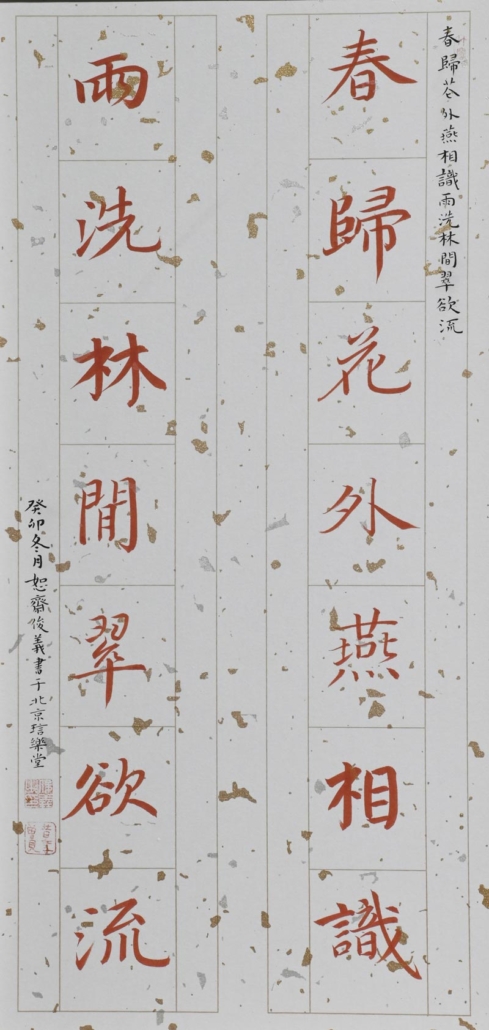 春歸花外燕相識雨洗林間翠欲流
春歸花外燕相識
雨洗林間翠欲流
癸卯冬月恕齋俊義書于北京琣樂堂